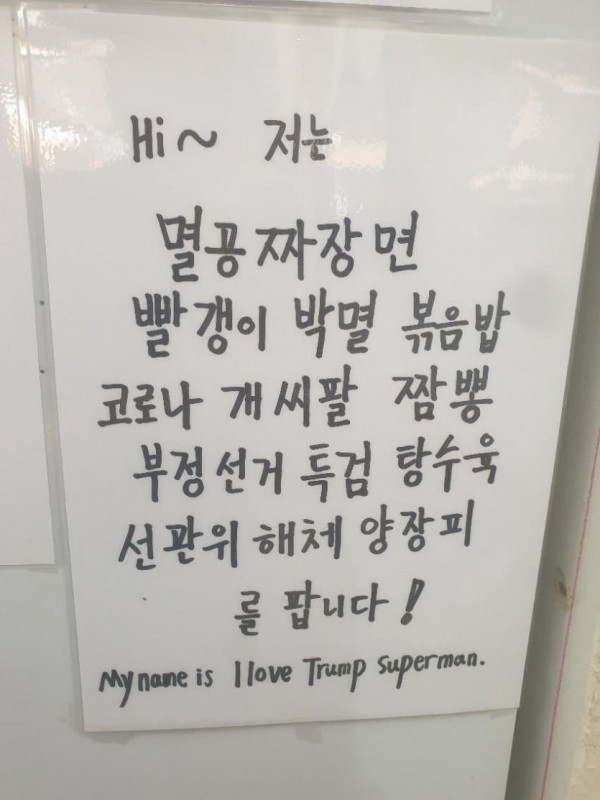 Hi~ 저는
멸공 짜장면
빨갱이 박멸 볶음밥
코로나 개씨팔 짬뽕
부정선거 특검 탕수육
선관위 해체 양장피
를 팝니다!
My name is I love Trump Superman.